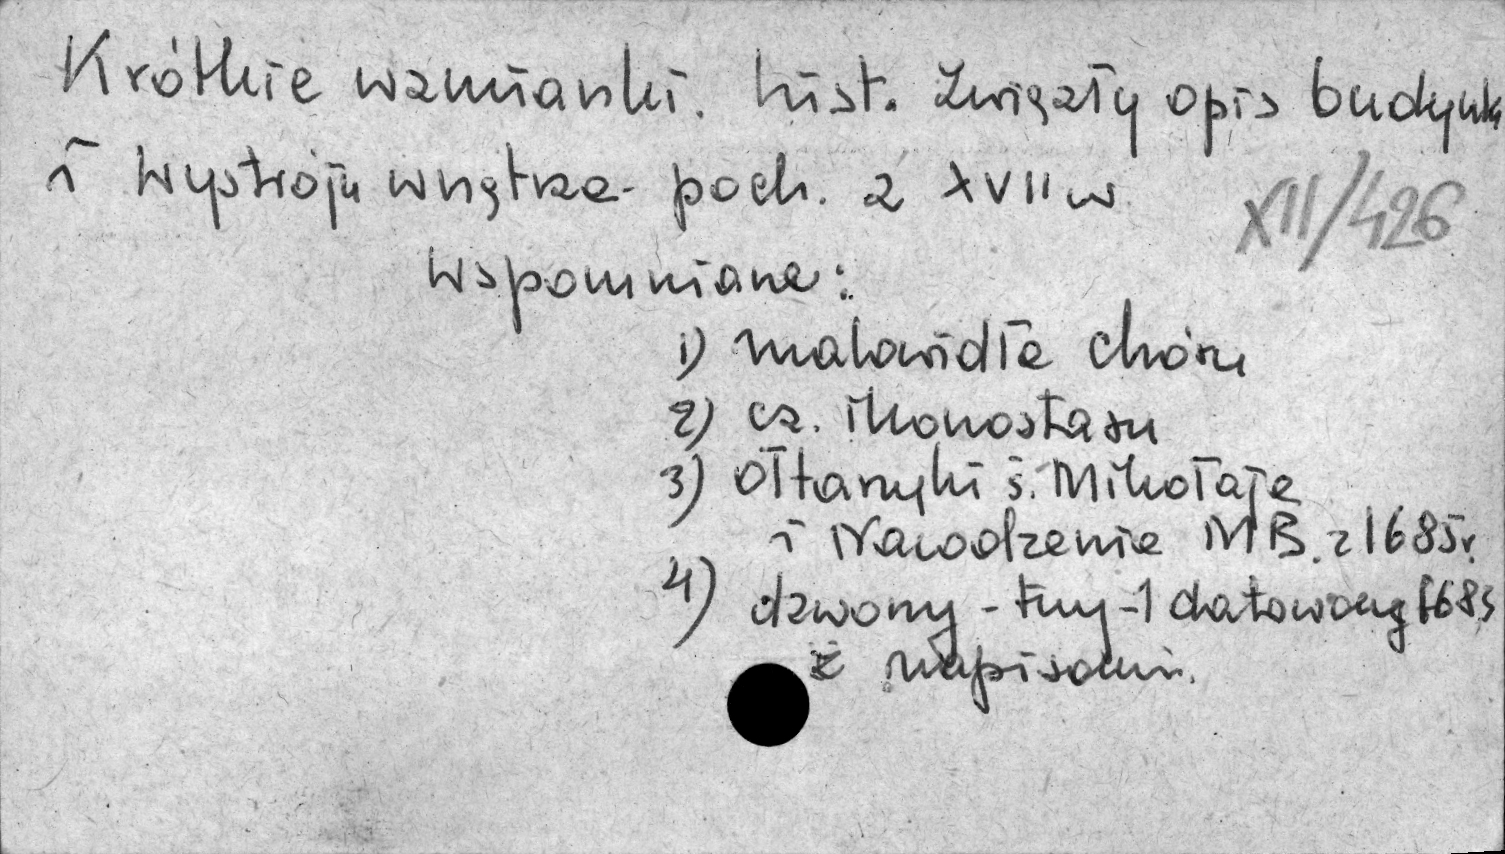 Krótkie wzmianki. hist. Zwięzły opis budynku
i wystroju wnętrza - poch. z XVII w.
XII/426
Wspomniane:
1) malowidła chóru
2) cz. ikonostasu
3) ołtarzyki ś. Mikołaja
i Narodzenia MB. z 1685 r.
4) dzwony - trzy - 1 datowany 1685
z napisami.